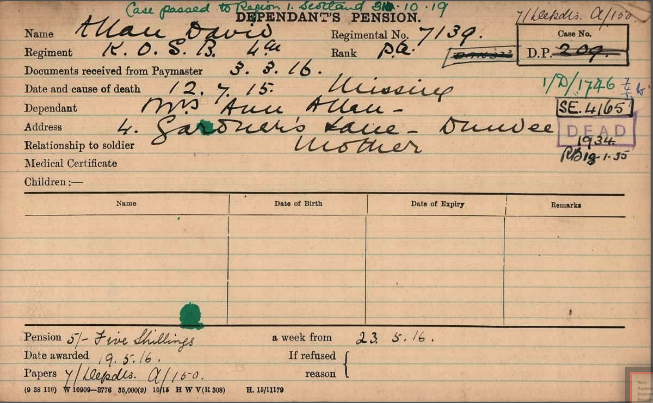 Case passed to Region 1. Scotland 31.10.19
DEPENDANT'S PENSION.
7/Depdts. A/150.
Name Allan David
Regimental No. 7139.
Case No.
D.P. 209.
Regiment K.O.S.B. 4th
Rank Pte.
Documents received from Paymaster 3.3.16.
Date and cause of death 12.7.15. Missing
1/D/1746
Dependant Mrs Ann Allan-
SE.4165
Address 4. Gardner's Lane - Dundee
DEAD
1934
Relationship to soldier Mother
Medical Certificate
Children :—
Name
Date of Birth
Date of Expiry
Remarks
Pension 5/- Five Shillings a week from 23.5.16.
Date awarded 19.5.16. If refused
Papers 7/Depdts. A/150. reason
(9 38 110) W 10909—3776 35,000(2) 10/15 H W V(R 308) H. 15/11179